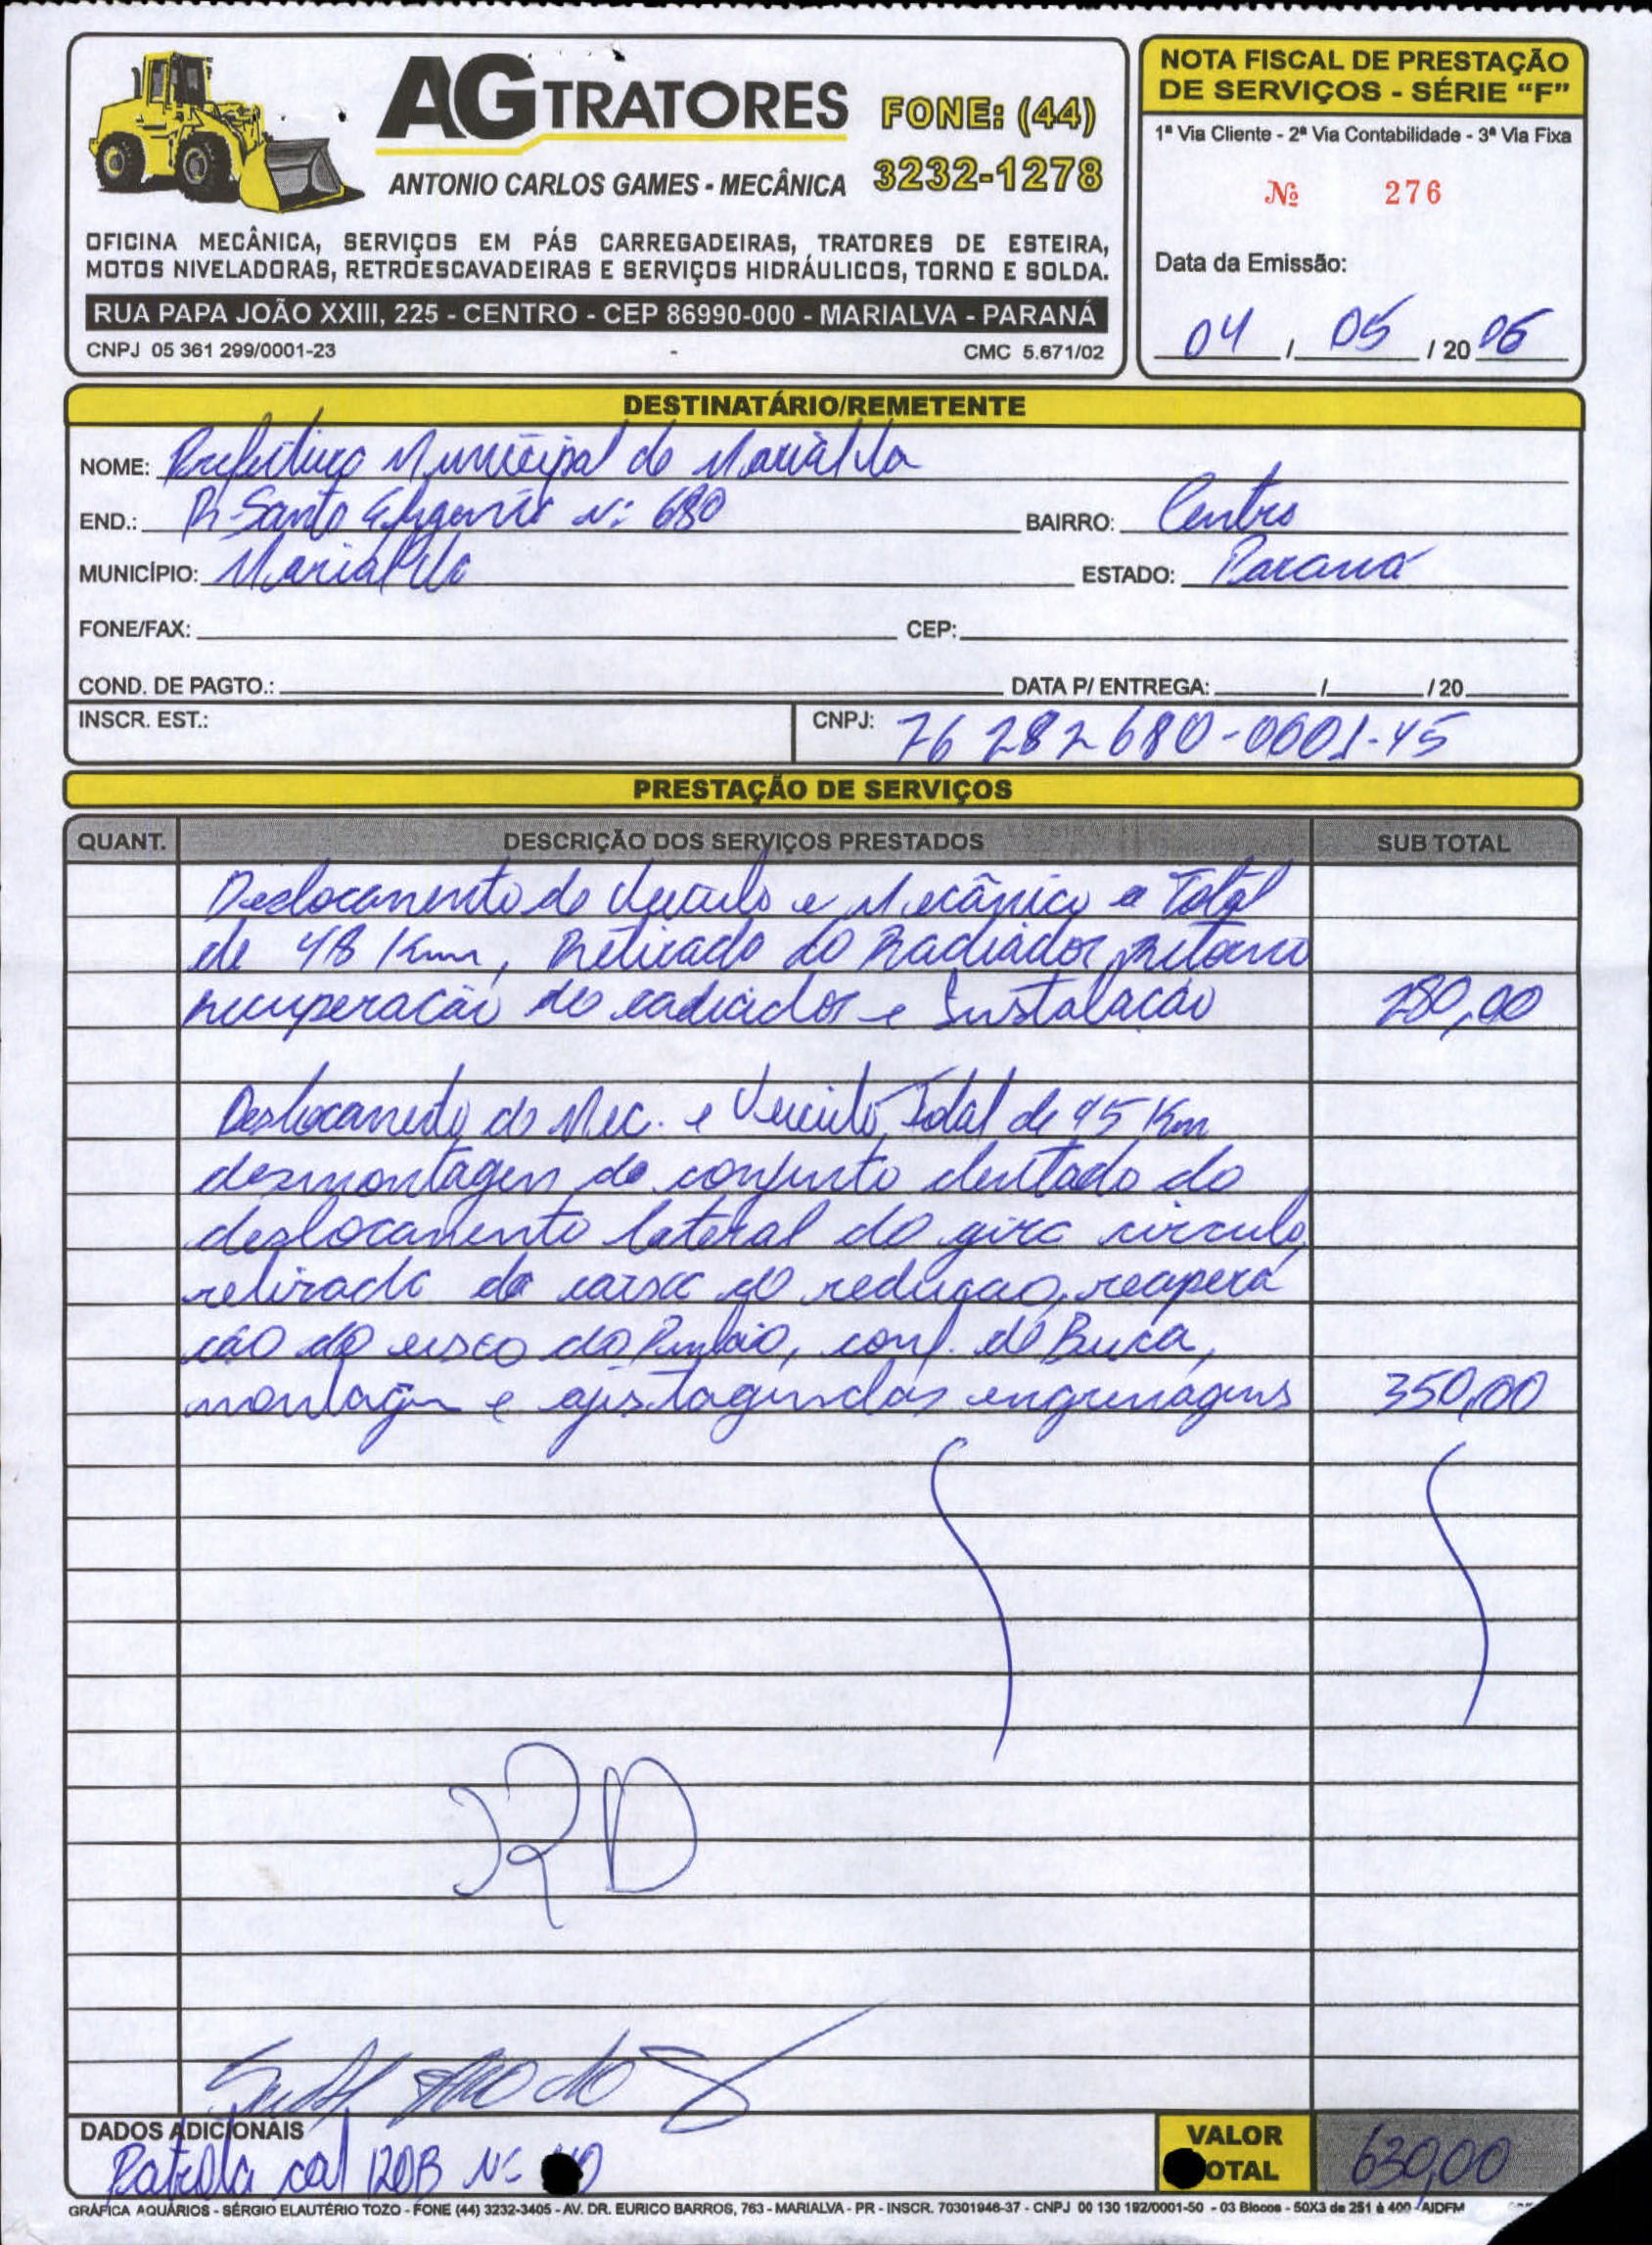 AG TRATORES
FONE: (44)
3232-1278
ANTONIO CARLOS GAMES - MECÂNICA
OFICINA MECÂNICA, SERVIÇOS EM PÁS CARREGADEIRAS, TRATORES DE ESTEIRA,
MOTOS NIVELADORAS, RETROESCAVADEIRAS E SERVIÇOS HIDRÁULICOS, TORNO E SOLDA.
RUA PAPA JOÃO XXIII, 225 - CENTRO - CEP 86990-000 - MARIALVA - PARANÁ
CNPJ 05 361 299/0001-23 - CMC 5.671/02
NOTA FISCAL DE PRESTAÇÃO
DE SERVIÇOS - SÉRIE “F”
1ª Via Cliente - 2ª Via Contabilidade - 3ª Via Fixa
Nº 276
Data da Emissão:
04 / 05 / 20 06
DESTINATÁRIO/REMETENTE
NOME: Prefeitura Municipal de Marialva
END.: R. Santa Efigenia Nº 680 BAIRRO: Centro
MUNICÍPIO: Marialva ESTADO: Paraná
FONE/FAX: CEP:
COND. DE PAGTO.: DATA P/ ENTREGA: / / 20
INSCR. EST.: CNPJ: 76 282 680-0001-45
PRESTAÇÃO DE SERVIÇOS
QUANT. DESCRIÇÃO DOS SERVIÇOS PRESTADOS SUB TOTAL
Deslocamento do Veiculo e Mecânico a Total
de 48 Km, Retirada do Radiador, retorno
recuperação do radiador e Instalação 280,00
Deslocamento do Mec. e Veiculo, Total de 45 Km
desmontagem do conjunto dentado do
deslocamento lateral do giro circulo,
retirada da caixa de redução, recupera
ção do eixo do Pinhão, conf. de Buca,
montagem e ajustagem das engrenagens 350,00
DADOS ADICIONAIS
Patrola cat 120B
VALOR
TOTAL 630,00
GRÁFICA AQUÁRIOS - SÉRGIO ELAUTÉRIO TOZO - FONE (44) 3232-3405 - AV. DR. EURICO BARROS, 763 - MARIALVA - PR - INSCR. 70301946-37 - CNPJ 00 130 192/0001-50 - 03 Blocos - 50X3 de 251 à 400 - AIDFM